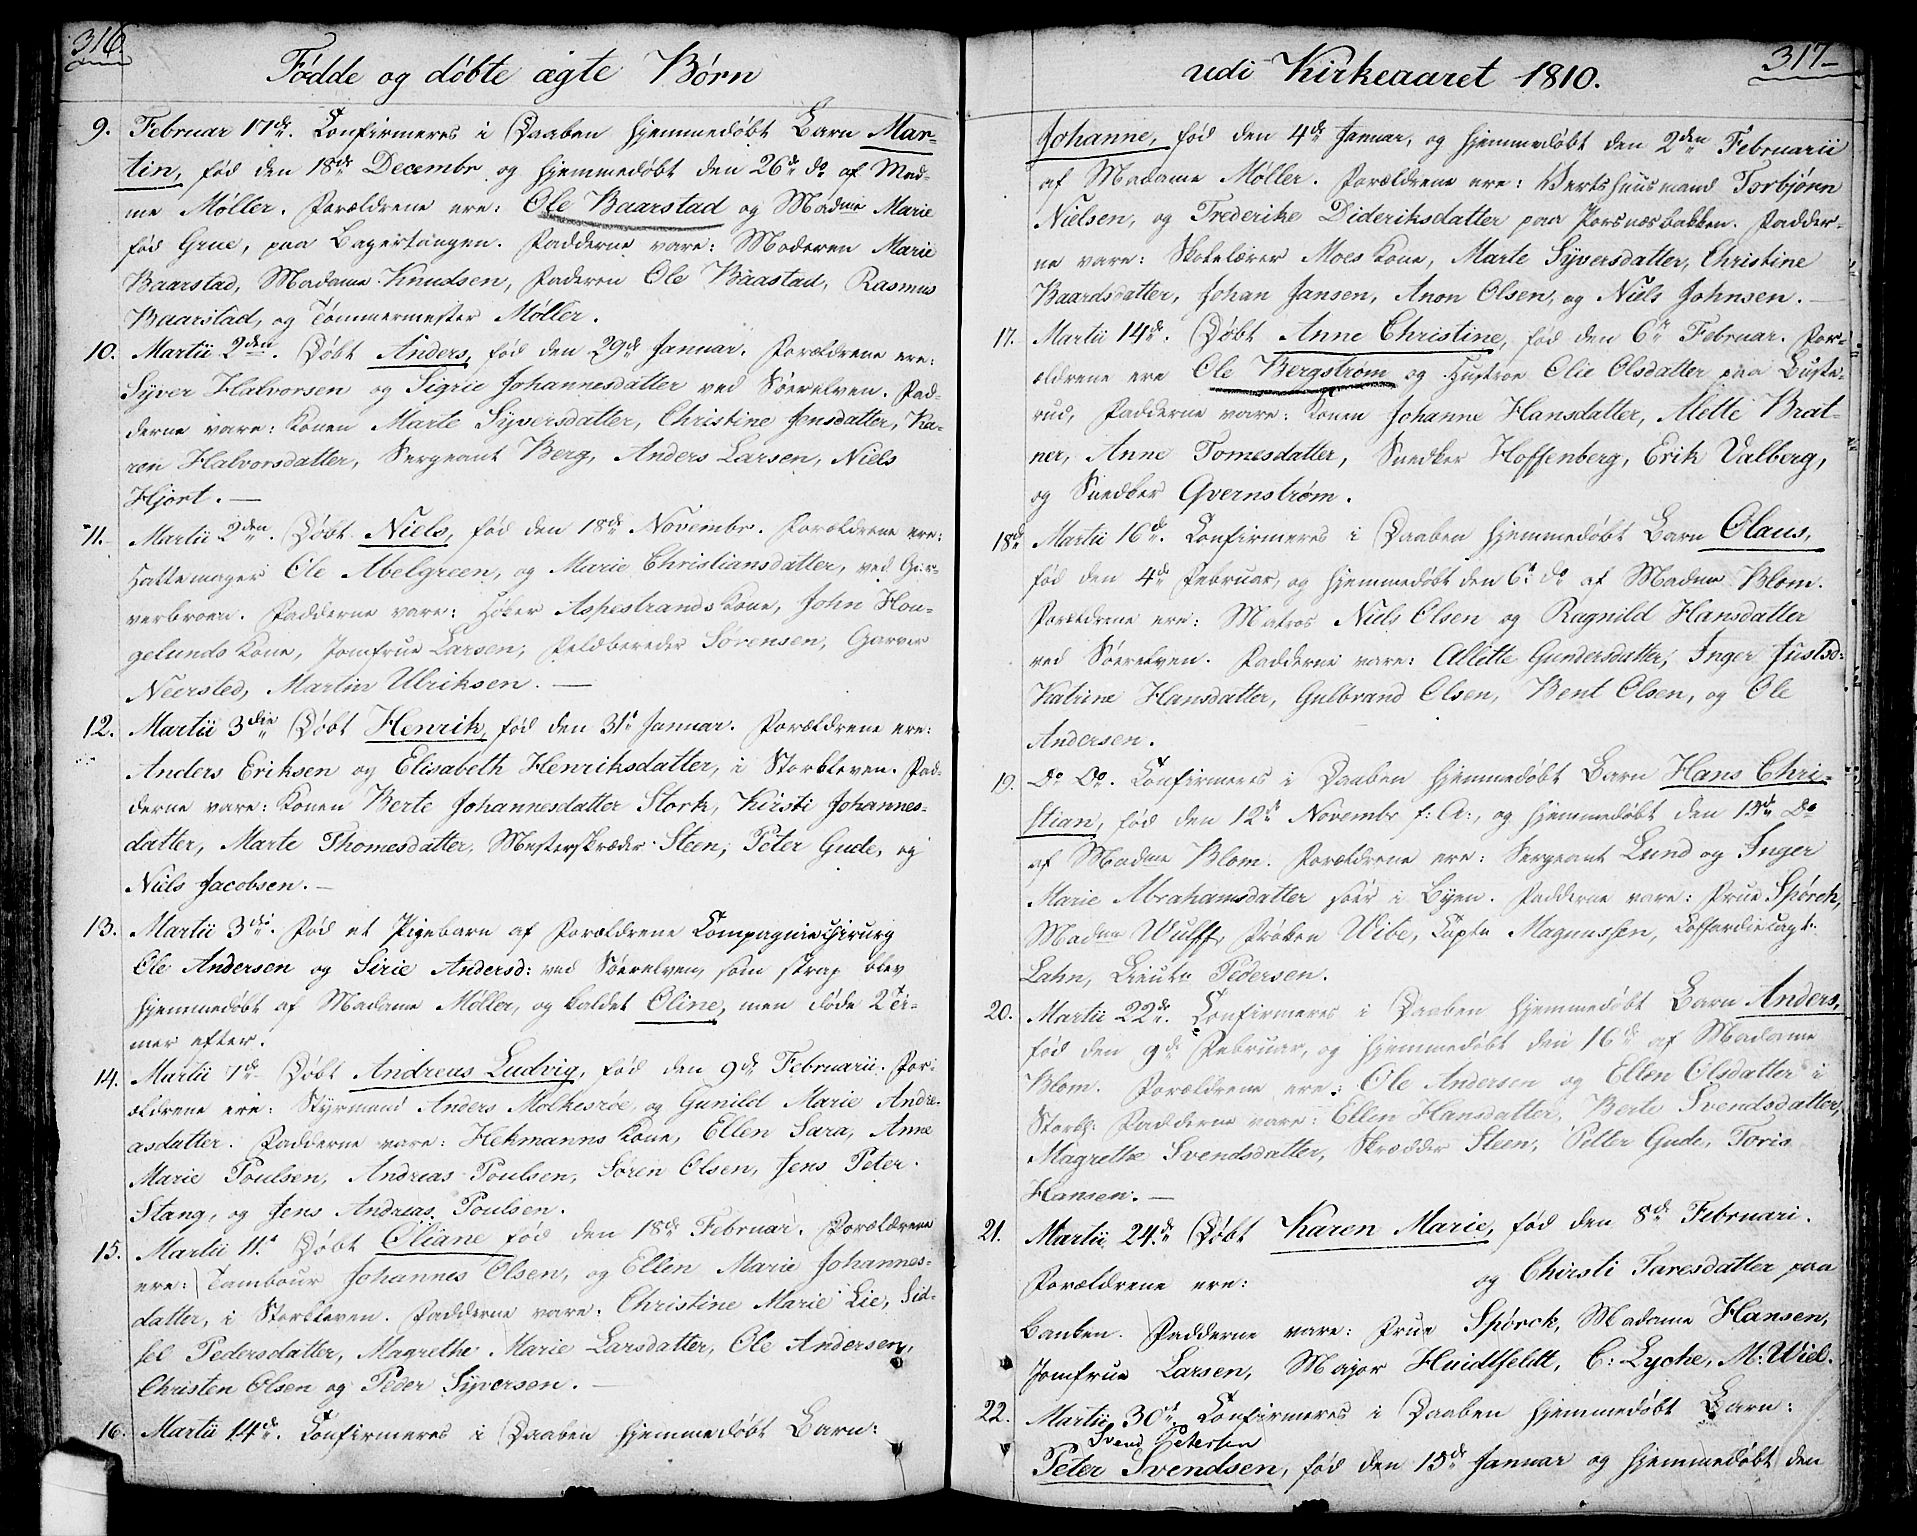 316.
Fødde og døbte ægte Børn
9. Februar 17de. Confirmeres i Daaben hjemmedøbt Barn Mar-
tin, fød den 18de Decembr og hjemmedøbt den 26de do af Mad-
me Møller. Forældrene ere: Ole Baarstad og Madme Marie
fød Grue, paa Bagertangen. Fadderne vare: Moderen Marie
Baarstad, Madame Knudsen, Faderen Ole Baastad, Rasmus
Baarstad, og Tømmermester Møller.
10. Martii 2den. Døbt Anders, fød den 29de Januar. Forældrene ere:
Syver Halvorsen og Sigrie Johannesdatter ved Søerelven. Fad-
derne vare: Konen Marte Syversdatter, Christine Jensdatter, Ka-
ren Halvorsdatter, Sergeant Berg, Anders Larsen, Niels
Hjort. —
11. Martii 2den. Døbt Niels, fød den 18de Novembr. Forældrene ere:
Hattemager Ole Abelgreen, og Marie Christiansdatter, ved Gar-
verbroen. Fadderne vare: Høker Aspestrands Kone, John Hou-
gelunds Kone, Jomfrue Larsen, Feldbereder Sørensen, Garver
Neersted, Martin Ulriksen. —
12. Martii 3die Døbt Henrik, fød den 31te Januar. Forældrene ere:
Anders Eriksen og Elisabeth Henriksdatter, i Storkleven. Fad-
derne vare: Konen Berte Johannesdatter Stork, Kirsti Johannes-
datter, Marte Thomesdatter, Mesterskræder Steen, Peter Gude, og
Niels Jacobsen. —
13. Martii 3die. Fød et Pigebarn af Forældrene Compagnie Chirurg
Ole Andersen og Sirie Andersd: ved Søerelven, som strax blev
hjemmedøbt af Madame Møller, og kaldet Oline, men døde 2 Ti-
mer efter.
14. Martii 7de Døbt Andreas Ludvig, fød den 9de Februarii. For-
ældrene ere: Styrmand Anders Molkesrøe, og Gunild Marie Andre-
asdatter. Fadderne vare: Hekmanns Kone, Ellen Sara, Anne
Marie Poulsen, Andreas Poulsen, Søren Olsen, Jens Peter
Stang, og Jens Andreas Poulsen.
15. Martii 11te Døbt Oliane fød den 18de Februar. Forældrene
ere: Tambour Johannes Olsen, og Ellen Marie Johannes-
datter, i Storkleven. Fadderne vare: Christine Marie Lie, Sid-
sel Pedersdatter, Magrethe Marie Larsdatter, Ole Andersen,
Christen Olsen og Peder Syversen. —
16. Martii 14de. Confirmeres i Daaben hjemmedøbt Barn:
317
udi Kirkeaaret 1810.
Johanne, fød den 4de Januar, og hjemmedøbt den 2den Februarii
af Madame Møller. Forældrene ere: Vertshuusmand Torbjønn
Nielsen, og Frederike Dideriksdatter paa Porsnesbakken. Fadder-
ne vare: Skolelærer Moes Kone, Marte Syversdatter, Christine
Baardsdatter, Johan Jansen, Anon Olsen, og Niels Johnsen. —
17. Martii 14de. Døbt Anne Christine, fød den 6te Februar. For-
ældrene ere Ole Bergstrøm og Hustroe Olie Olsdatter paa Buste-
rud, Fadderne vare: Konen Johanne Hansdatter, Alette Brat-
ner, Anne Tomesdatter, Snedker Hoffenberg, Erik Valberg,
og Snedker Qvernstrøm.
18de Martii 16de. Confirmeres i Daaben hjemmedøbt Barn Olaus,
fød den 4de Februar, og hjemmedøbt den 6te do af Madme Blom.
Forældrene ere: Matros Niels Olsen og Ragnild Hansdatter
ved Søerelven. Fadderne vare: Allette Gundersdatter, Inger Justsd:
Katrine Hansdatter, Gulbrand Olsen, Bent Olsen, og Ole
Andersen.
19. Do Do. Confirmeres i Daaben hjemmedøbt Barn Hans Chri-
stian, fød den 12te Novembr f: A:, og hjemmedøbt den 15de Do
af Madme Blom. Forældrene ere: Sergeant Lund og Inger
Marie Abrahamsdatter her i Byen. Fadderne vare: Frue Spørck,
Madme Wulff, Frøken Wibe, Captn Magnussen, Cofferdiecapt:
Lahn, Lieutn Pedersen.
20. Martii 22de. Confirmeres i Daaben hjemmedøbt Barn Anders,
fød den 9de Februar, og hjemmedøbt den 16de af Madame
Blom. Forældrene ere: Ole Andersen og Ellen Olsdatter i
Storkl: Fadderne vare: Ellen Hansdatter, Berte Svendsdatter,
Magrethe Svendsdatter, Skrædder Steen, Petter Gude, Toris
Hansen. —
21. Martii 24de Døbt Karen Marie, fød den 8de Februari.
Forældrene ere: og Chirsti Taresdatter paa
Banken. Fadderne vare: Frue Spørck, Madame Hansen,
Jomfrue Larsen, Major Huidtfeldt, C: Lyche, M: Wiel.
22. Martii 30te Confirmeres i Daaben hjemmedøbt Barn:
Svend Petersen
Peter Svendsen, fød den 15de Januar og hjemmedøbt den